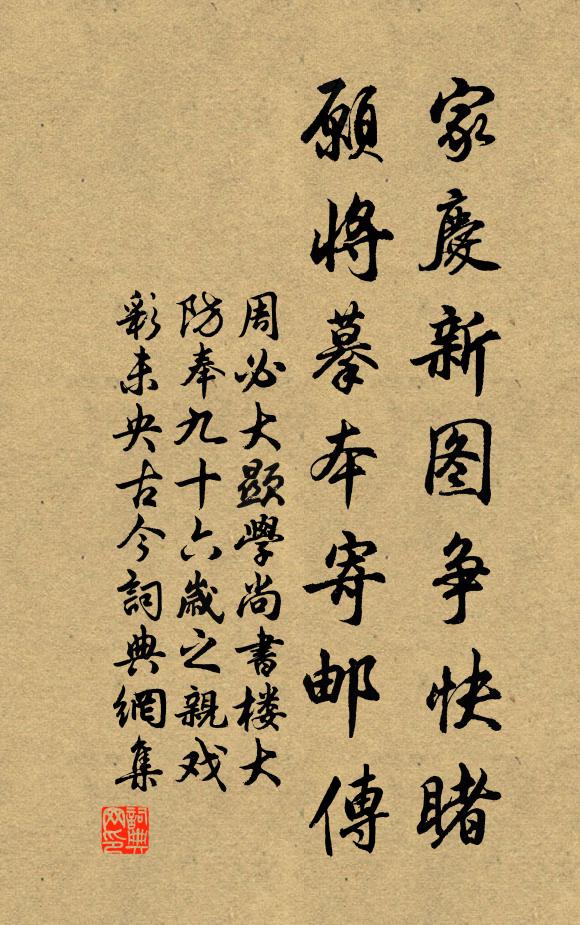 家慶新图争快睹
願將摹本寄邮傳
周必大顯學尚書楼大
防奉九十六歲之親戏
彩未央古今詞典網集
詞典
网印